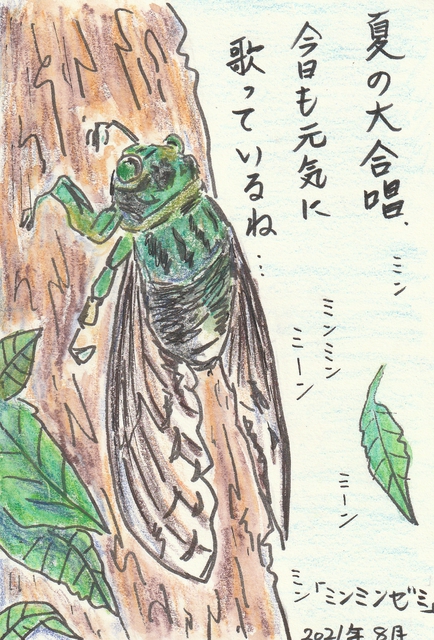 夏の大合唱、
今日も元気に
歌っているね…
ミン
ミンミン
ミーン
ミーン
ミン
「ミンミンゼミ」
2021年8月